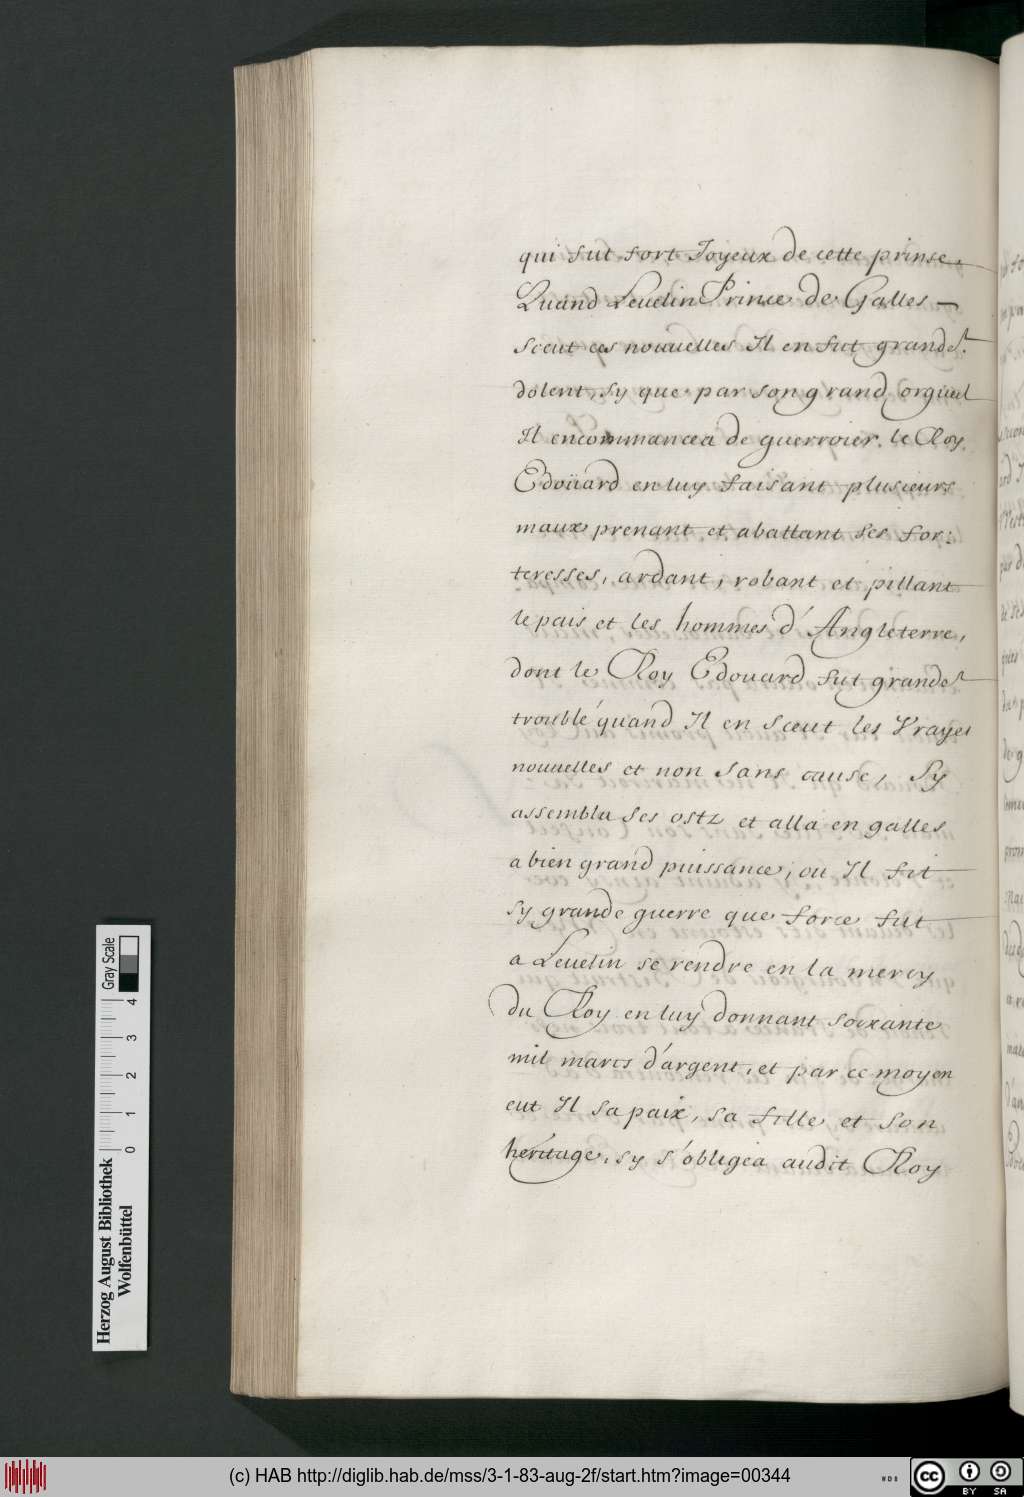 qui fut fort Joyeux de cette prinse.
Quand Leuelin Prince de Galles —
sceut ces nouuelles Il en fut grandet.
dolent, sy que par son grand orgueil
Il encommancea de guerroier le Roy
Edoüard en luy faisant plusieurs
maux prenant et abattant ses for:
teresses, ardant, robant et pillant
le pais et les hommes d'Angleterre,
dont le Roy Edouard fut grandet
troublé quand Il en sceut les Vrayes
nouuelles et non sans cause, Sy
assembla ses ostz et alla en galles
a bien grand puissance, ou Il fit
sy grande guerre que force fut
a Leuelin se rendre en la mercy
du Roy en luy donnant soixante
mil marcs d'argent, et par ce moyen
eut Il sa paix, sa fille et son
heritage, sy s'obligea audit Roy
Gray Scale
0 1 2 3 4
Herzog August Bibliothek
Wolfenbüttel
(c) HAB http://diglib.hab.de/mss/3-1-83-aug-2f/start.htm?image=00344
WDB
cc BY SA